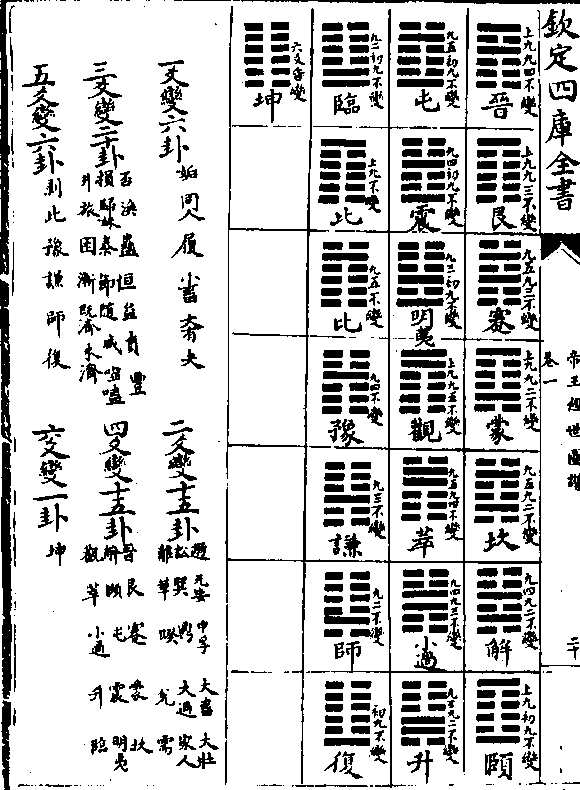 欽定四庫全書
帝王經世圖譜
卷一
二十
上九九四不變
晉
上九九三不變
艮
九五九三不變
蹇
上九九二不變
蒙
九五九二不變
坎
九四九二不變
解
上九初九不變
頤
九五初九不變
屯
九四初九不變
震
九三初九不變
明夷
上九九五不變
觀
九五九四不變
萃
九四九三不變
小過
九三九二不變
升
九二初九不變
臨
上九不變
比
九五不變
比
九四不變
豫
九三不變
謙
九二不變
師
初九不變
復
六爻皆變
坤
一爻變六卦 姤 同人 履 小畜 大有 夬
二爻變十五卦
遯 无妄 中孚 大畜 大壯
訟 巽 鼎 大過 家人
離 革 睽 兌 需
三爻變二十卦
否 渙 蠱 恒 益 賁 豐
損 歸妹 泰 節 隨 咸 噬嗑
井 旅 困 漸 既濟 未濟
四爻變十五卦
晉 艮 蹇 蒙 坎
解 頤 屯 震 明夷
觀 萃 小過 升 臨
五爻變六卦 剝 比 豫 謙 師 復
六爻變一卦 坤